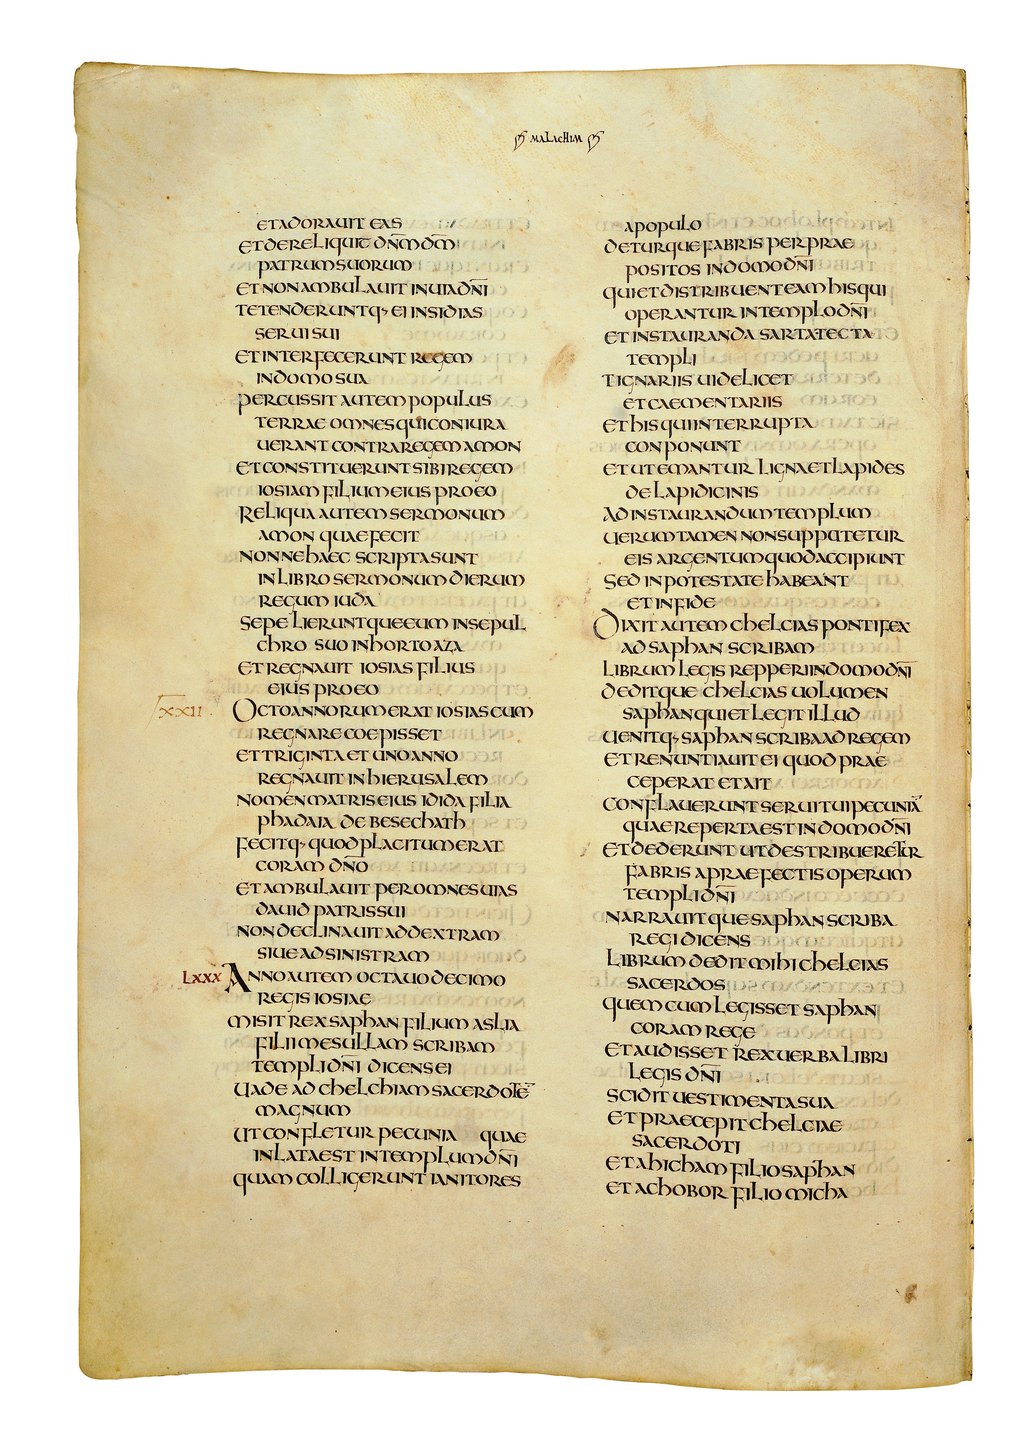 MALACHIM
ET ADORAUIT EAS
ET DERELIQUIT DN̄M D̄M
PATRUM SUORUM
ET NON AMBULAUIT IN UIA DN̄I
TETENDERUNTQ· EI INSIDIAS
SERUI SUI
ET INTERFECERUNT REGEM
IN DOMO SUA
PERCUSSIT AUTEM POPULUS
TERRAE OMNES QUI CONIURA
UERANT CONTRA REGEM AMON
ET CONSTITUERUNT SIBI REGEM
IOSIAM FILIUM EIUS PRO EO
RELIQUA AUTEM SERMONUM
AMON QUAE FECIT
NONNE HAEC SCRIPTA SUNT
IN LIBRO SERMONUM DIERUM
REGUM IUDA
SEPELIERUNTQUE EUM IN SEPUL
CHRO SUO IN HORTO AZA
ET REGNAUIT IOSIAS FILIUS
EIUS PRO EO
XXII OCTO ANNORUM ERAT IOSIAS CUM
REGNARE COEPISSET
ET TRIGINTA ET UNO ANNO
REGNAUIT IN HIERUSALEM
NOMEN MATRIS EIUS IDIDA FILIA
PHADAIA DE BESECHATH
FECITQ· QUOD PLACITUM ERAT
CORAM DN̄O
ET AMBULAUIT PER OMNES UIAS
DAUID PATRIS SUI
NON DECLINAUIT AD DEXTRAM
SIUE AD SINISTRAM
LXXX ANNO AUTEM OCTAUO DECIMO
REGIS IOSIAE
MISIT REX SAPHAN FILIUM ASLIA
FILII MESULLAM SCRIBAM
TEMPLI DN̄I DICENS EI
UADE AD CHELCHIAM SACERDOTĒ
MAGNUM
UT CONFLETUR PECUNIA QUAE
INLATA EST IN TEMPLUM DN̄I
QUAM COLLIGERUNT IANITORES
A POPULO
DETURQUE FABRIS PER PRAE
POSITOS IN DOMO DN̄I
QUI ET DISTRIBUENT EAM HIS QUI
OPERANTUR IN TEMPLO DN̄I
ET INSTAURANDA SARTATECTA
TEMPLI
TIGNARIIS UIDELICET
ET CAEMENTARIIS
ET HIS QUI INTERRUPTA
CONPONUNT
ET UT EMANTUR LIGNA ET LAPIDES
DE LAPIDICINIS
AD INSTAURANDUM TEMPLUM
UERUMTAMEN NON SUPPUTETUR
EIS ARGENTUM QUOD ACCIPIUNT
SED IN POTESTATE HABEANT
ET IN FIDE
DIXIT AUTEM CHELCIAS PONTIFEX
AD SAPHAN SCRIBAM
LIBRUM LEGIS REPPERI IN DOMO DN̄I
DEDITQUE CHELCIAS UOLUMEN
SAPHAN QUI ET LEGIT ILLUD
UENITQ· SAPHAN SCRIBA AD REGEM
ET RENUNTIAUIT EI QUOD PRAE
CEPERAT ET AIT
CONFLAUERUNT SERUI TUI PECUNIĀ
QUAE REPERTA EST IN DOMO DN̄I
ET DEDERUNT UT DESTRIBUERETUR
FABRIS A PRAEFECTIS OPERUM
TEMPLI DN̄I
NARRAUITQUE SAPHAN SCRIBA
REGI DICENS
LIBRUM DEDIT MIHI CHELCIAS
SACERDOS
QUEM CUM LEGISSET SAPHAN
CORAM REGE
ET AUDISSET REX UERBA LIBRI
LEGIS DN̄I
SCIDIT UESTIMENTA SUA
ET PRAECEPIT CHELCIAE
SACERDOTI
ET AHICHAM FILIO SAPHAN
ET ACHOBOR FILIO MICHA